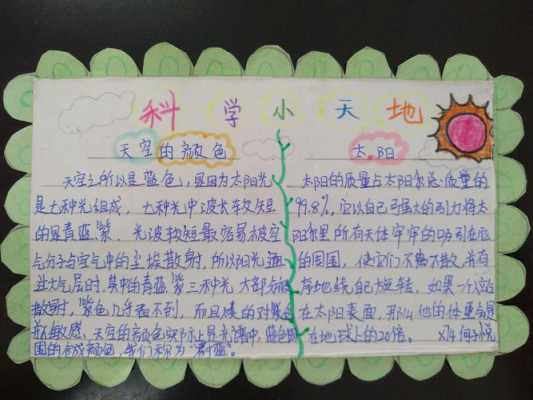 科学小天地
天空的颜色
天空之所以是蓝色,是因为太阳光
是七种光组成,七种光中波长较短
的是青蓝紫,光波较短最容易被空
气分子与空气中的尘埃散射,所以阳光通
过大气层时,其中的青蓝紫三种光大部分被
散射,紫色几乎看不到,而且
敏感,天空的颜色实际上是
的合成颜色,我们称为"蔚蓝"。
太阳
太阳的质量占太阳系总质量的
99.8%,它以自己强大的引力将太
阳系里所有天体牢牢的吸引在它
的周围,使它们不离不散,井然有
序地绕自己旋转,如果一个人站
在太阳表面,那么他的体重会是
在地球上的20倍。